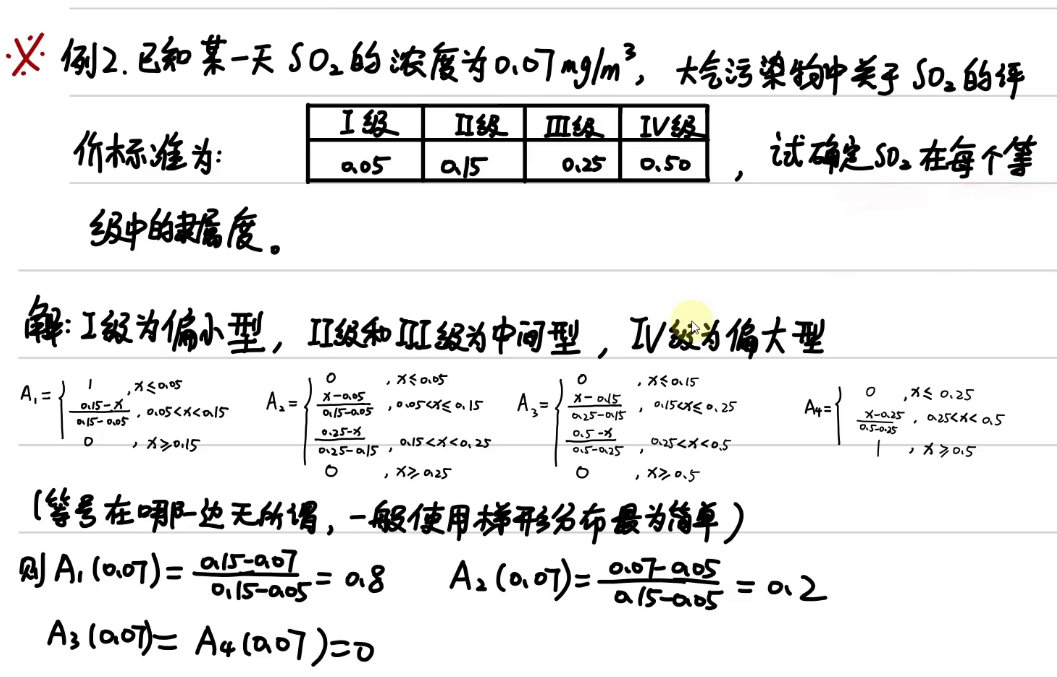 ※ 例2.已知某一天SO₂的浓度为0.07mg/m³，大气污染物中关于SO₂的评
价标准为：
I级 II级 III级 IV级
0.05 0.15 0.25 0.50
，试确定SO₂在每个等
级中的隶属度。
解：I级为偏小型，II级和III级为中间型，IV级为偏大型
A₁= { 1 , x≤0.05
(0.15-x)/(0.15-0.05) , 0.05<x<0.15
0 , x≥0.15
A₂= { 0 , x≤0.05
(x-0.05)/(0.15-0.05) , 0.05<x≤0.15
(0.25-x)/(0.25-0.15) , 0.15<x<0.25
0 , x≥0.25
A₃= { 0 , x≤0.15
(x-0.15)/(0.25-0.15) , 0.15<x≤0.25
(0.5-x)/(0.5-0.25) , 0.25<x<0.5
0 , x≥0.5
A₄= { 0 , x≤0.25
(x-0.25)/(0.5-0.25) , 0.25<x<0.5
1 , x≥0.5
(等号在哪一边无所谓，一般使用梯形分布最为简单)
则A₁(0.07)=(0.15-0.07)/(0.15-0.05)=0.8 A₂(0.07)=(0.07-0.05)/(0.15-0.05)=0.2
A₃(0.07)=A₄(0.07)=0